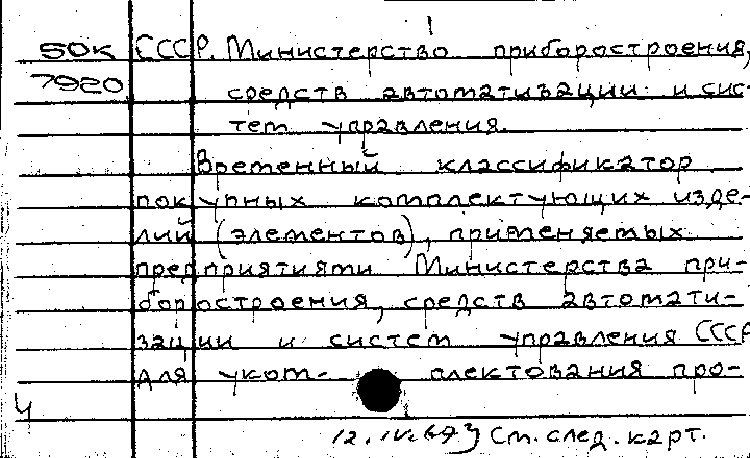 50к СССР. Министерство приборостроения,
7920 средств автоматизации и сис-
тем управления.
Временный классификатор
покупных комплектующих изде-
лий (элементов), применяемых
предприятиями Министерства при-
боростроения, средств автомати-
зации и систем управления СССР
для уком- плектования про-
Ч
12.IV.69 См. след. карт.